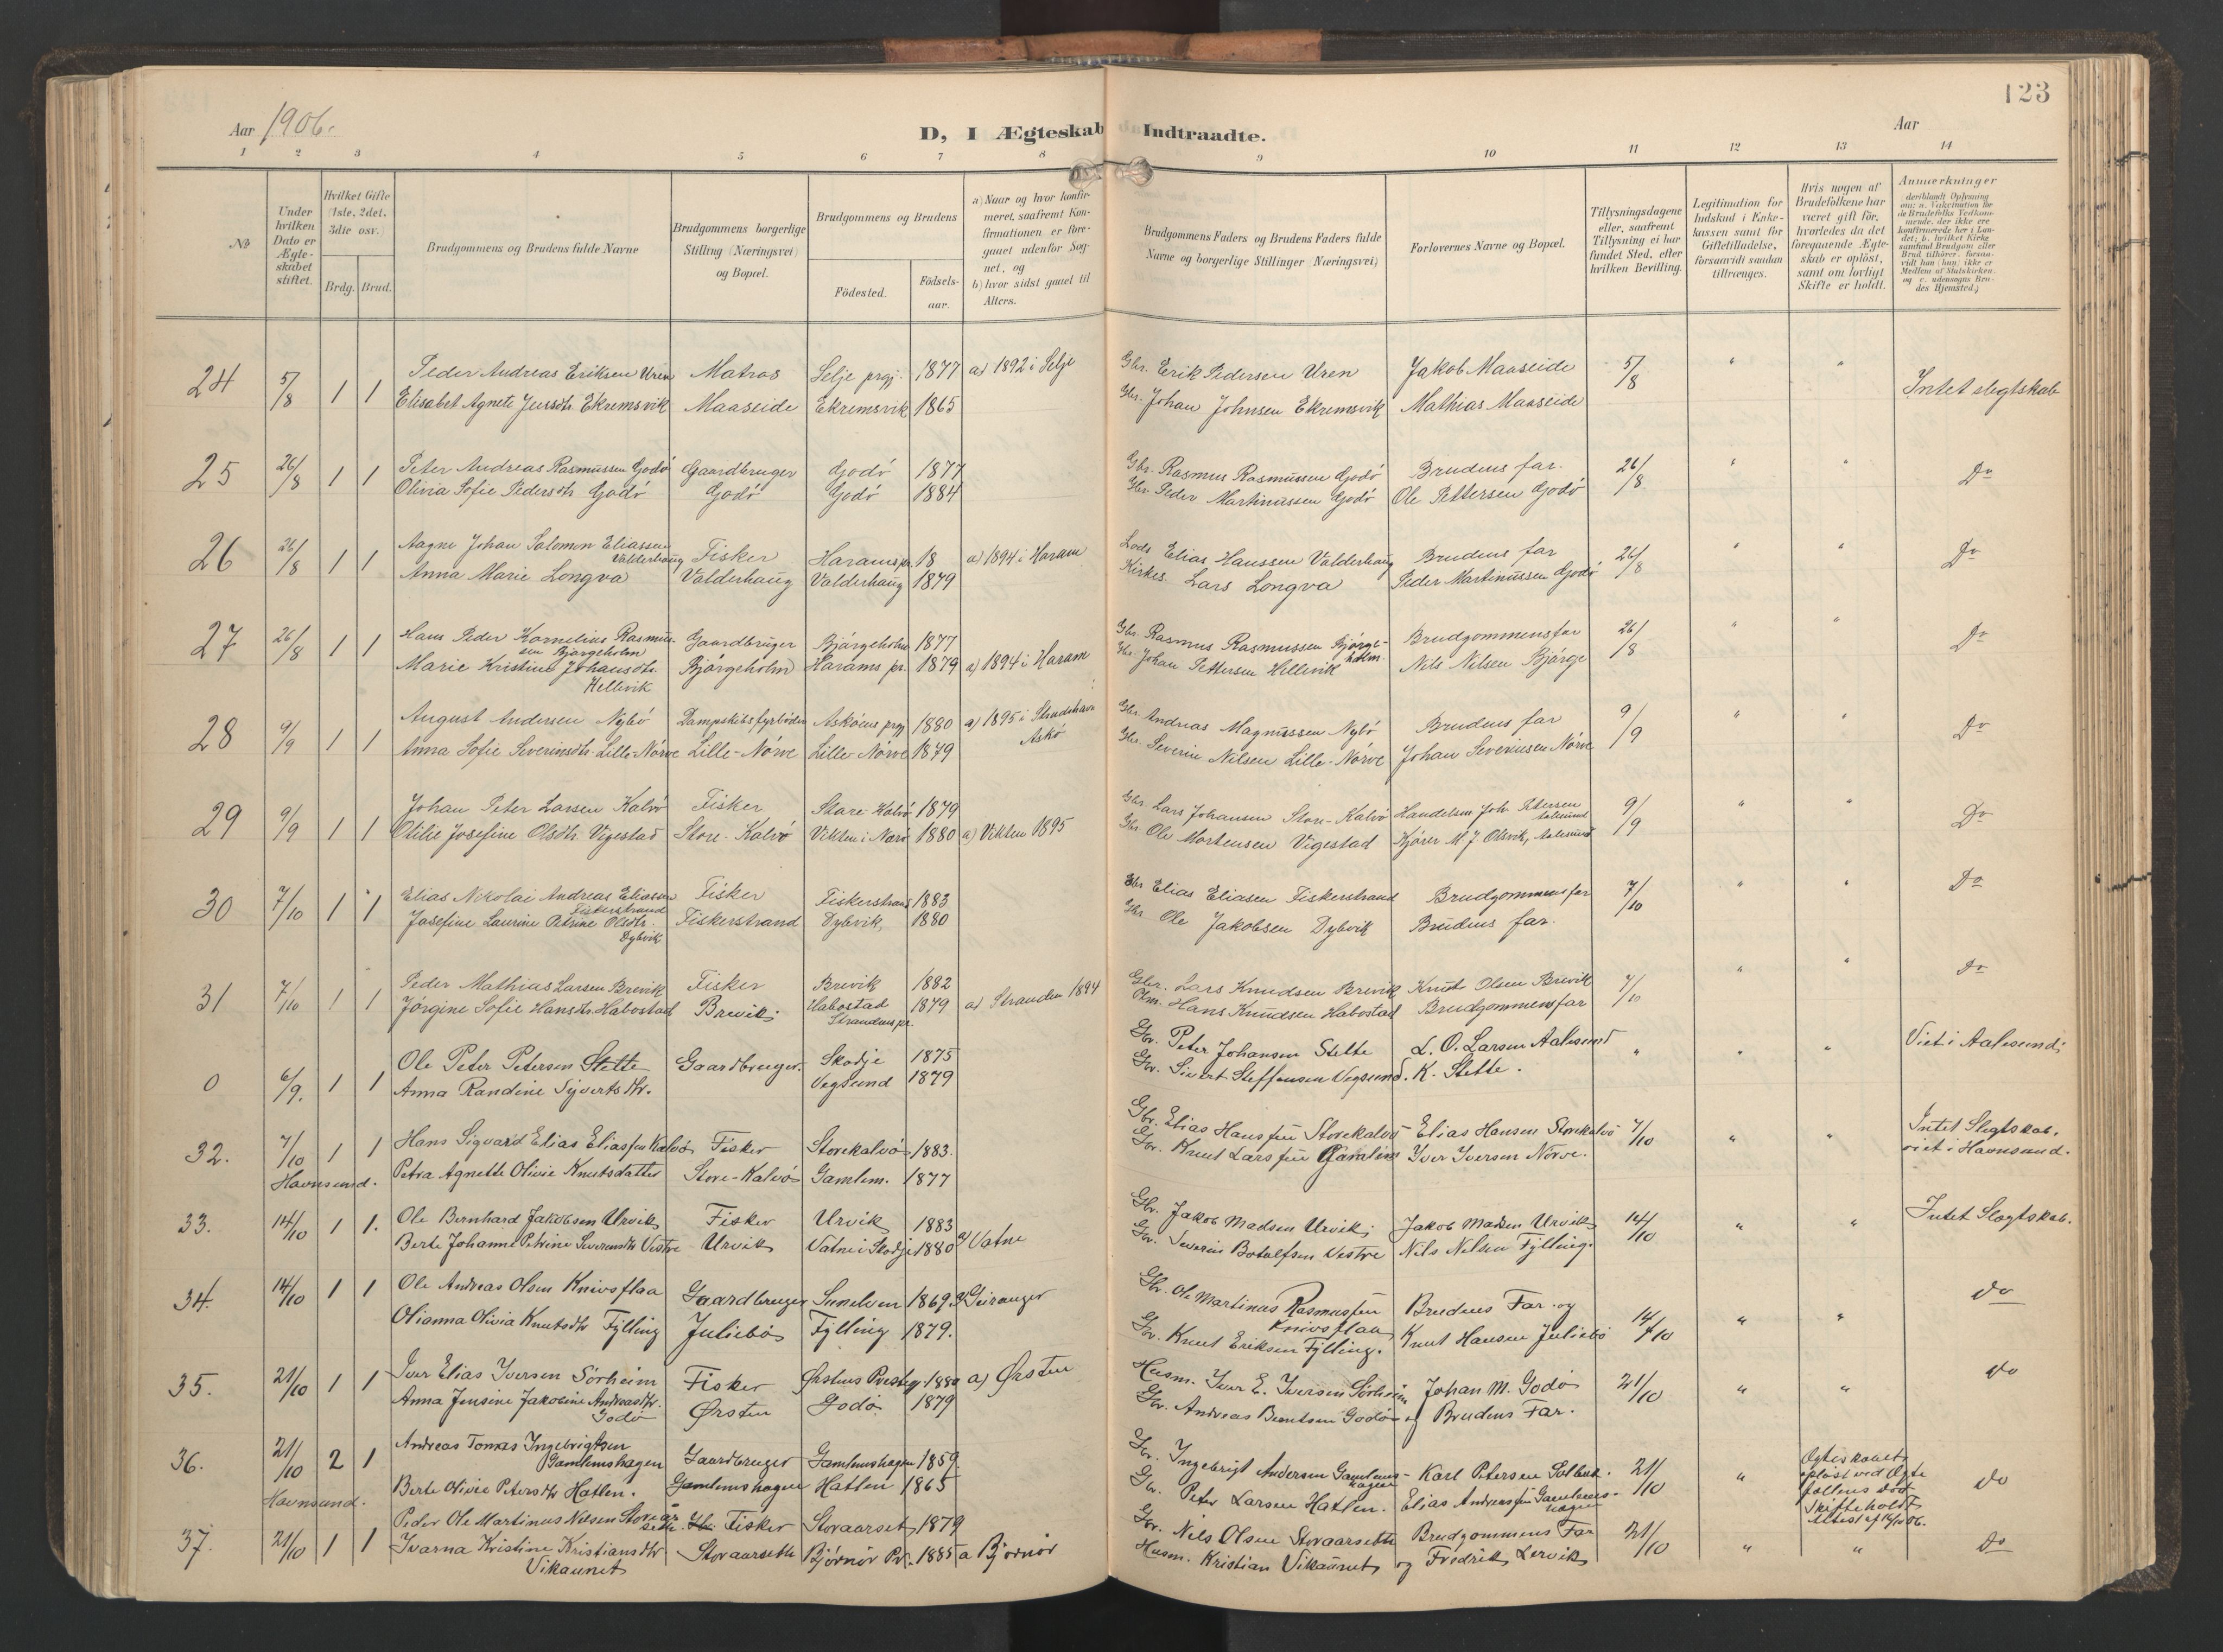 123
Aar 1906.
D, I Ægteskab Indtraadte.
Aar
1 2 3 4 5 6 7 8 9 10 11 12 13 14
No
Under hvilken Dato er Ægteskabet stiftet.
Hvilket Gifte (1ste, 2det, 3die osv.)
Brdg. Brud.
Brudgommens og Brudens fulde Navne
Brudgommens borgerlige Stilling (Næringsvei) og Bopæl.
Brudgommens og Brudens
Födested.
Födsels-aar.
a) Naar og hvor konfirmeret, saafremt Konfirmationen er foregaaet udenfor Sognet, og
b) hvor sidst gaaet til Alters.
Brudgommens Faders og Brudens Faders fulde Navne og borgerlige Stillinger (Næringsvei)
Forlovernes Navne og Bopæl.
Tillysningsdagene eller, saafremt Tillysning ei har fundet Sted, efter hvilken Bevilling.
Legitimation for Indskud i Enkekassen samt for Giftetilladelse, forsaavidt saadan tiltrænges.
Hvis nogen af Brudefolkene har været gift för, hvorledes da det foregaaende Ægteskab er oplöst, samt om lovligt Skifte er holdt.
Anmærkninger
24 5/8 1 1 Peder Andreas Eriksen Uren Matros Selje prgj. 1877 a) 1892 i Selje Gbr. Erik Pedersen Uren Jakob Maaseide 5/8 " " Intet slegtskab
Elisabet Agnete Jensdtr. Ekremsvik Maaseide Ekremsvik 1865 Gbr. Johan Johnsen Ekremsvik Mathias Maaseide
25 26/8 1 1 Peter Andreas Rasmussen Godö Gaardbruger Godö 1877 Gbr. Rasmus Rasmussen Godö Brudens far. 26/8 " " Do
Olivia Sofie Pedersdtr Godö Godö Godö 1884 Gbr. Peder Martinussen Godö Ole Pettersen Godö
26 26/8 1 1 Aagne Johan Salomon Eliassen Valderhaug Fisker Harams pr. 18 a) 1894 i Haram Lods Elias Hanssen Valderhaug Brudens far 26/8 " " Do
Anna Marie Longva Valderhaug Valderhaug 1879 Kirkes. Lars Longva Peder Martinussen Godö
27 26/8 1 1 Hans Peder Kornelius Rasmussen Bjørgeholm Gaardbruger Bjørgeholm 1877 Gbr. Rasmus Rasmussen Bjørgeholm Brudgommens far 26/8 " " Do
Marie Kristine Johansdtr. Hellevik Bjørgeholm Harams pr. 1879 a) 1894 i Haram Gbr. Johan Pettersen Hellevik Nils Nilsen Bjørge
28 9/9 1 1 August Andersen Nybö Dampskibsfyrböder Askóens prgj 1880 a) 1895 i Strudshavn Askö Gbr. Andreas Magnussen Nybö Brudens far 9/9 " " Do
Anna Sofie Severinsdtr. Lille-Nörve Lille-Nörve Lille Nörve 1879 Gbr. Severin Nilsen Lille-Nörve Johan Severinsen Nörve
29 9/9 1 1 Johan Peter Larsen Kalvö Fisker Store Kalvö 1879 Gbr. Lars Johansen Store-Kalvö Handelsm Joh. Petersen Aalesund 9/9 " " Do
Otilie Josefine Olsdtr. Vigestad Store-Kalvö Vikten i Nærö 1880 a) Vikten 1895 Gbr. Ole Mortensen Vigestad Kjører M. J. Olsvik, Aalesund
30 7/10 1 1 Elias Nikolai Andreas Eliassen Fiskerstrand Fisker Fiskerstrand 1883 Gbr Elias Eliasen Fiskerstrand Brudgommens far 7/10 " " Do
Josefine Laurine Petrine Olsdtr. Dybvik Fiskerstrand Dybvik, 1880 Gbr. Ole Jakobsen Dybvik Brudens far.
31 7/10 1 1 Peder Mathias Larsen Brevik Fisker Brevik 1882 Gbr. Lars Knudsen Brevik Knut Olsen Brevik 7/10 " " Do
Jörgine Sofie Hansdtr. Habostad Brevik Habostad Strandens pr. 1879 a) Stranden 1894 Hans Knudsen Habostad Brudgommens far
0 6/9. 1 1 Ole Peter Petersen Stette Gaardbruger. Skodje 1875 Gbr. Peter Johansen Stette L. O. Larsen Aalesund " " " Viet i Aalesund
Anna Randine Sjvertsdtr. Vegsund 1879 Gbr. Sivert Steffensen Vegsund. K. Stette.
32. 7/10 1 1 Hans Sigvard Elias Eliassen Kalvö Fisker Storekalvö 1883. Gbr. Elias Hanssen Storekalvö Elias Hansen Storekalvö 7/10 " " Intet Slegtskab. viet i Havnsund.
Havnsund. Petra Agnethe Olivie Knutsdatter Store-Kalvö Gamlem. 1877 Gbr. Knut Larssen Gamlem Iver Iversen Nörve.
33. 14/10 1 1. Ole Bernhard Jakobsen Urvik Fisker Urvik 1883 Gbr. Jakob Madsen Urvik Jakob Madsen Urvik 14/10 " " Intet Slegtskab.
Berte Johanne Petrine Severinsdtr Vestre Urvik Vatne i Skodje 1880 a) Vatne Gbr. Severin Botolfsen Vestre Nils Nilsen Fylling.
34. 14/10 1 1 Ole Andreas Olsen Knivsflaa Gaardbruger Sunelven 1869. a) Geiranger Gbr. Ole Martinus Rasmussen Knivsflaa Brudens Far og 14/10 " " do
Olianna Olivia Knutsdtr Fylling Juliebö Fylling 1879. Gbr. Knut Eriksen Fylling. Knut Hansen Juliebö
35. 21/10 1 1 Iver Elias Iversen Sörheim Fisker Ørstens Prestegj. 1880 a) Ørsten Husm. Iver E. Iversen Sörheim Johan M. Godö 21/10 " " do
Anna Jensine Jakobine Andreasdtr. Godö Ørsten Godö 1879 Gbr. Andreas Berntsen Godö og Brudens Far.
36. 21/10 2 1 Andreas Tomas Ingebrigtsen Gamlemshagen Gaardbruger Gamlemshagen 1859 Gbr. Ingebrigt Andersen Gamlemshagen Karl Petersen Solbak. 21/10 " Ægteskabet opløst ved Ægtefællens død Skifte holdt Attest af 16/10 06. do
Havnsund. Berte Olivie Petersdtr Hatlen. Gamlemshagen Hatlen 1865 Gbr. Peter Larsen Hatlen. Elias Andreassen Gamlemshagen
37. 21/10 1 1 Peder Ole Martinus Nilsen Storaarseth. Fisker Storaarset 1879 Gbr. Nils Olsen Storaarseth Brudgommens Far 21/10 " " do
Ivarna Kristine Kristiansdtr Vikaunet Storaarseth Bjørnör Pr. 1885 a Bjørnör Husm. Kristian Vikaunet og Fredrik Lervik